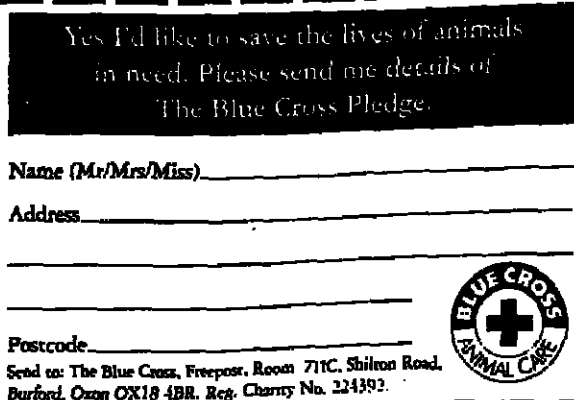 Yes I'd like to save the lives of animals
in need. Please send me details of
The Blue Cross Pledge.
Name (Mr/Mrs/Miss)
Address
Postcode
BLUE CROSS
ANIMAL CARE
Send to: The Blue Cross, Freepost, Room 711C, Shilton Road,
Burford, Oxon OX18 4BR. Reg. Charity No. 224392.